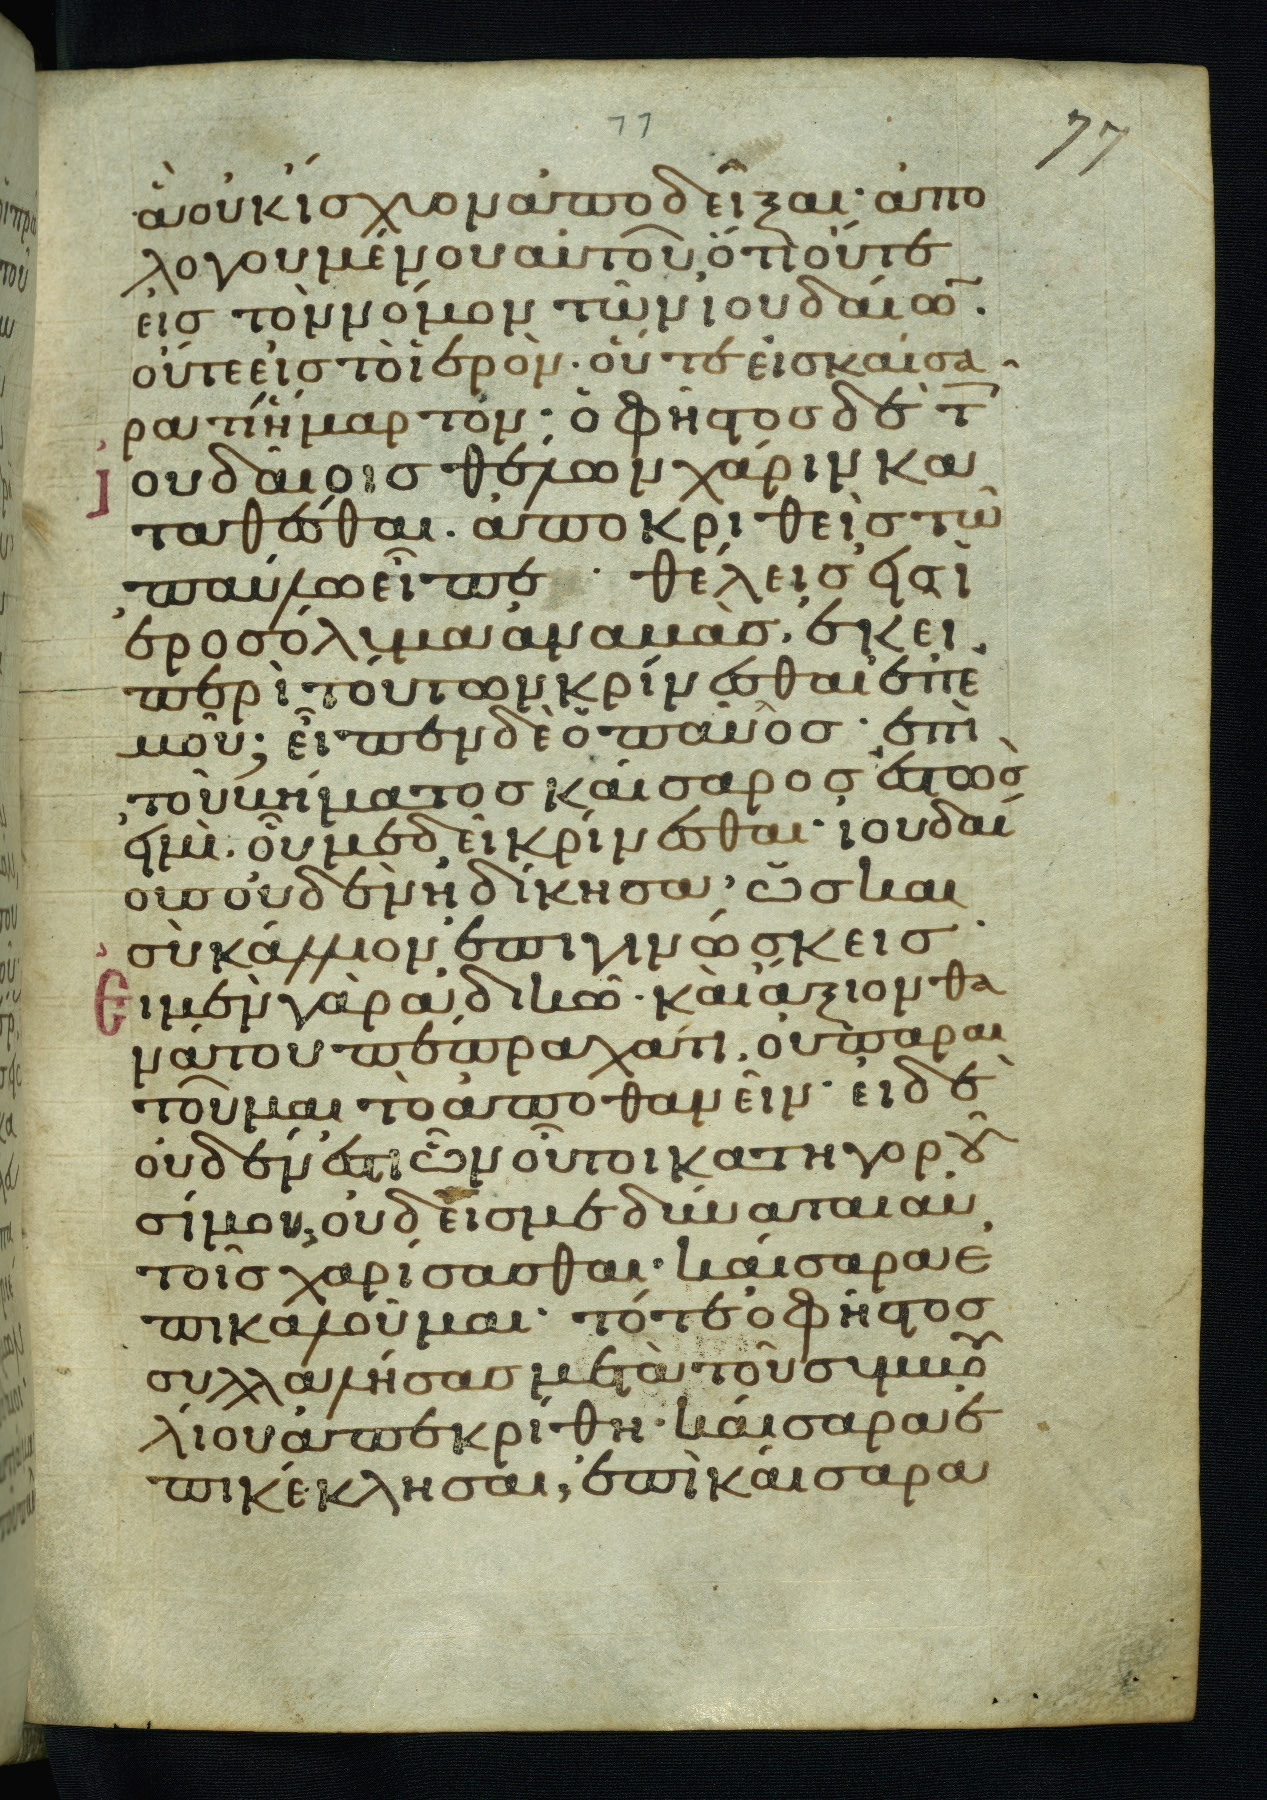 77 77
ἃ οὐκ ἴσχυον ἀποδεῖξαι· ἀπο
λογουμένου αὐτοῦ, ὅτι οὔτε
εἰς τὸν νόμον τῶν ἰουδαίω̅.
οὔτε εἰς τὸ ἱερὸν. οὔτε εἰς καίσα
ρα τὶ ἥμαρτον· ὁ φῆστος δὲ τ̅
ἰουδαίοις θέλων χάριν κα
ταθέσθαι. ἀποκριθεὶς τῶ
παύλω εἶπε· θέλεις εἰσ ἱ
εροσόλυμα ἀναβὰς. ἐκει
περὶ τούτων κρίνεσθαι ἐπ ἐ
μοῦ; εἶπεν δὲ ὁ παῦλος· ἐπὶ
τοῦ βήματος καίσαρος ἑστὼς
εἰμὶ. οὗ με δεῖ κρίνεσθαι· ἰουδαί
ους οὐδὲν ἠδίκησα, ὡς και
σὺ κάλλιον ἐπιγινώσκεις·
Εἰ μὲν γὰρ ἀδικῶ. καὶ ἄξιον θα
νάτου πέπραχά τι, οὐ παραι
τοῦμαι τὸ ἀποθανεῖν· εἰ δὲ
οὐδέν ἐστι ὧν οὗτοι κατηγοροῦ
σί μου, οὐδείς με δύναται αὐ
τοῖς χαρίσασθαι· καίσαρα ἐ
πικαλοῦμαι· τότε ὁ φῆστος
συλλαλήσας μετὰ τοῦ συμβου
λίου ἀπεκρίθη· καίσαρα ἐ
πικέκλησαι, ἐπὶ καίσαρα